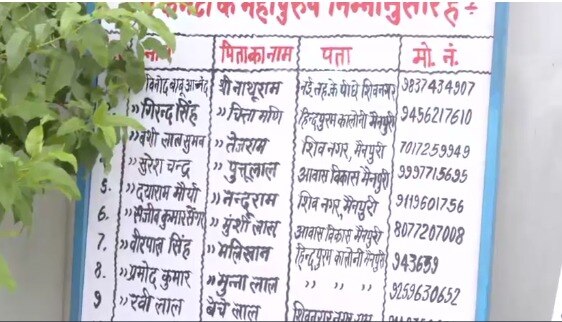 कमेटी के महापुरुष निम्नानुसार है ÷
नाम पिता का नाम पता मो. नं.
विनोद बाबू आनन्द श्री नाथूराम नई तह. के पीछे शिवनगर 9837434907
" गिरन्द सिंह " चिन्ता मणि हिन्दपुरम कालोनी मैनपुरी 9456217610
" वंशी लाल सुमन " तेजराम शिव नगर, मैनपुरी 7017259949
" सुरेश चन्द्र " पुत्तूलाल आवास विकास मैनपुरी 9997715695
5- " दयाराम मौर्या " नन्दराम शिव नगर, मैनपुरी 9119601756
6. " संजीव कुमार सेंगर " मुंशी लाल आवास विकास मैनपुरी 8077207008
7. " वीरपाल सिंह " मलिखान हिन्द पुरम कालोनी मैनपुरी 943659
8. " प्रमोद कुमार " मुन्ना लाल " " " 9259630652
9 " रवी लाल बेचे लाल शिवनगर